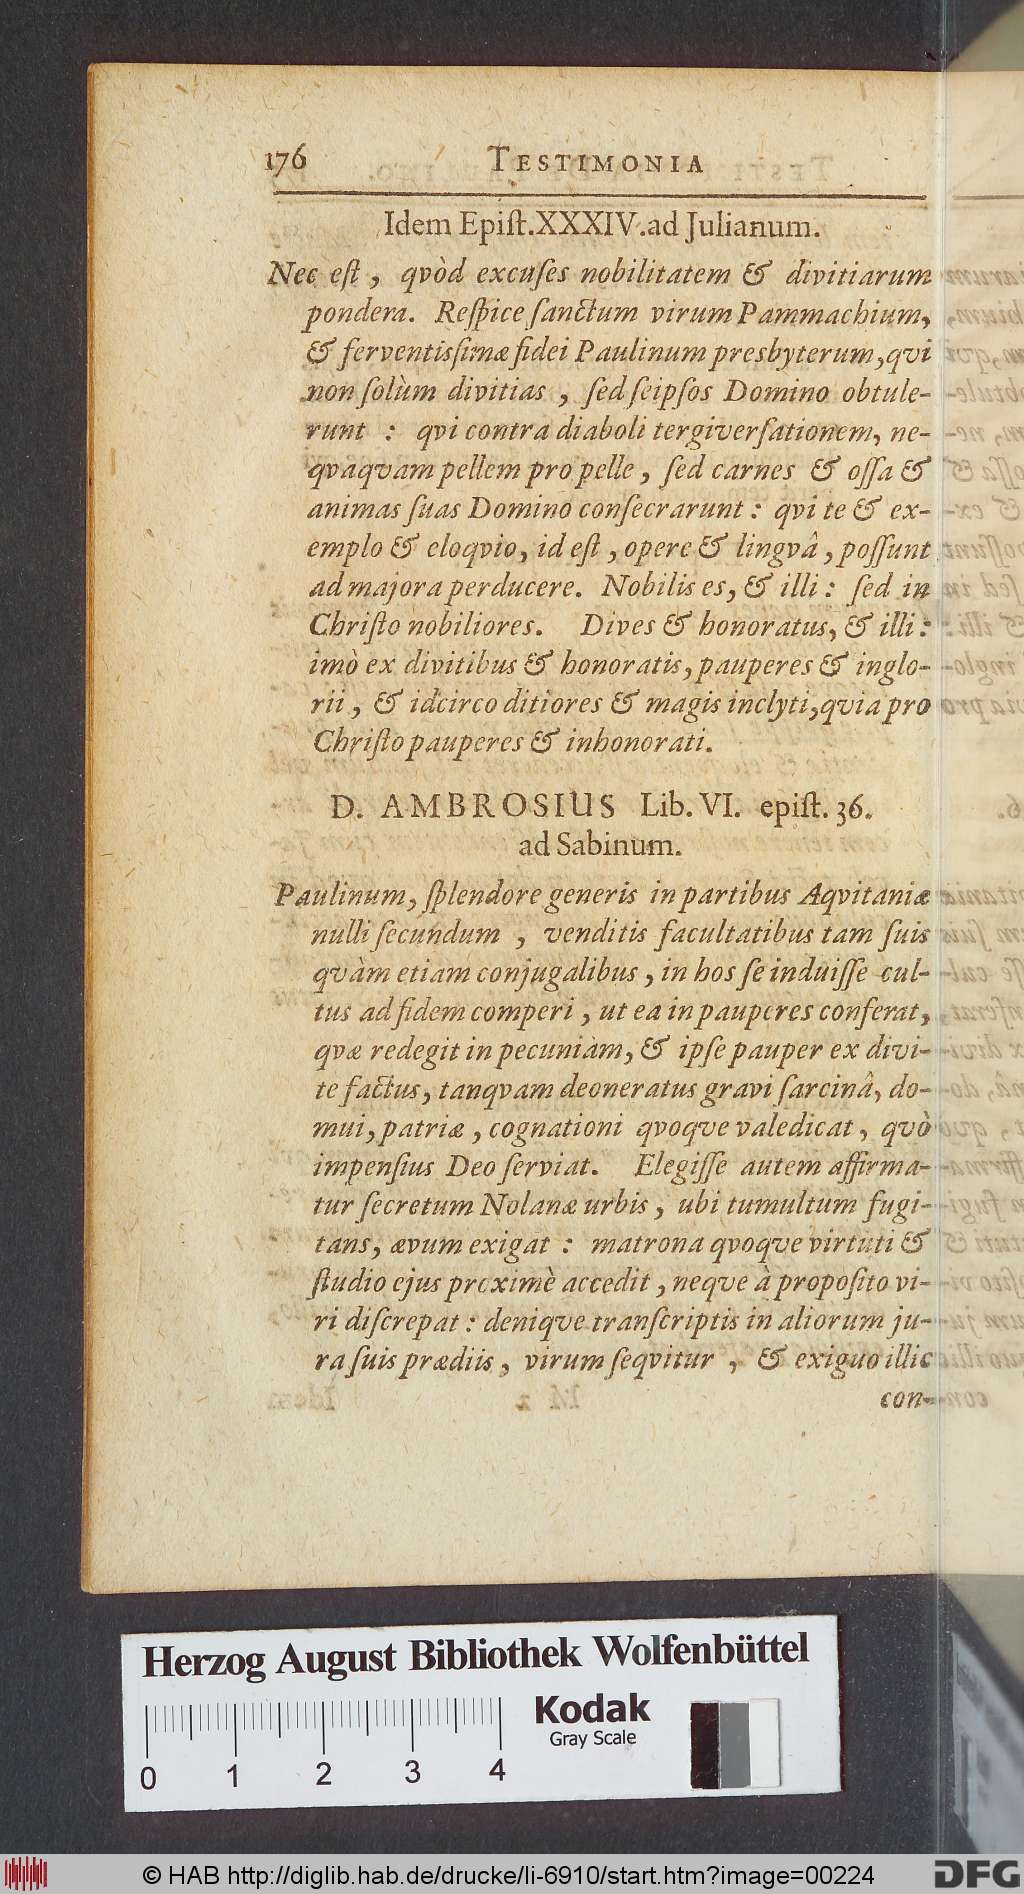 176 TESTIMONIA
Idem Epiſt.XXXIV.ad Julianum.
Nec eſt, qvòd excuſes nobilitatem & divitiarum
pondera. Reſpice ſanctum virum Pammachium,
& ferventisſimæ fidei Paulinum presbyterum, qvi
non ſolùm divitias, ſed ſeipſos Domino obtule-
runt : qvi contra diaboli tergiverſationem, ne-
qvaqvam pellem pro pelle, ſed carnes & oſſa &
animas ſuas Domino conſecrarunt : qvi te & ex-
emplo & eloqvio, id eſt, opere & lingvâ, poſſunt
ad majora perducere. Nobilis es, & illi : ſed in
Chriſto nobiliores. Dives & honoratus, & illi :
imò ex divitibus & honoratis, pauperes & inglo-
rii, & idcirco ditiores & magis inclyti, qvia pro
Chriſto pauperes & inhonorati.
D. AMBROSIUS Lib. VI. epiſt. 36.
ad Sabinum.
Paulinum, ſplendore generis in partibus Aqvitaniæ
nulli ſecundum, venditis facultatibus tam ſuis
qvàm etiam conjugalibus, in hos ſe induiſſe cul-
tus ad fidem comperi, ut ea in pauperes conferat,
qvæ redegit in pecuniam, & ipſe pauper ex divi-
te factus, tanqvam deoneratus gravi ſarcinâ, do-
mui, patriæ, cognationi qvoqve valedicat, qvò
impenſius Deo ſerviat. Elegiſſe autem affirma-
tur ſecretum Nolanæ urbis, ubi tumultum fugi-
tans, ævum exigat : matrona qvoqve virtuti &
ſtudio ejus proximè accedit, neqve à propoſito vi-
ri diſcrepat : deniqve tranſcriptis in aliorum ju-
ra ſuis prædiis, virum ſeqvitur, & exiguo illic
con-
Herzog August Bibliothek Wolfenbüttel
Kodak
Gray Scale
0 1 2 3 4
© HAB http://diglib.hab.de/drucke/li-6910/start.htm?image=00224
DFG